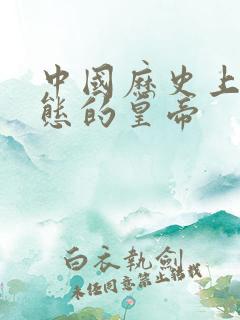 中國歷史上
態的皇帝
白衣執劍
未經同意禁止轉載